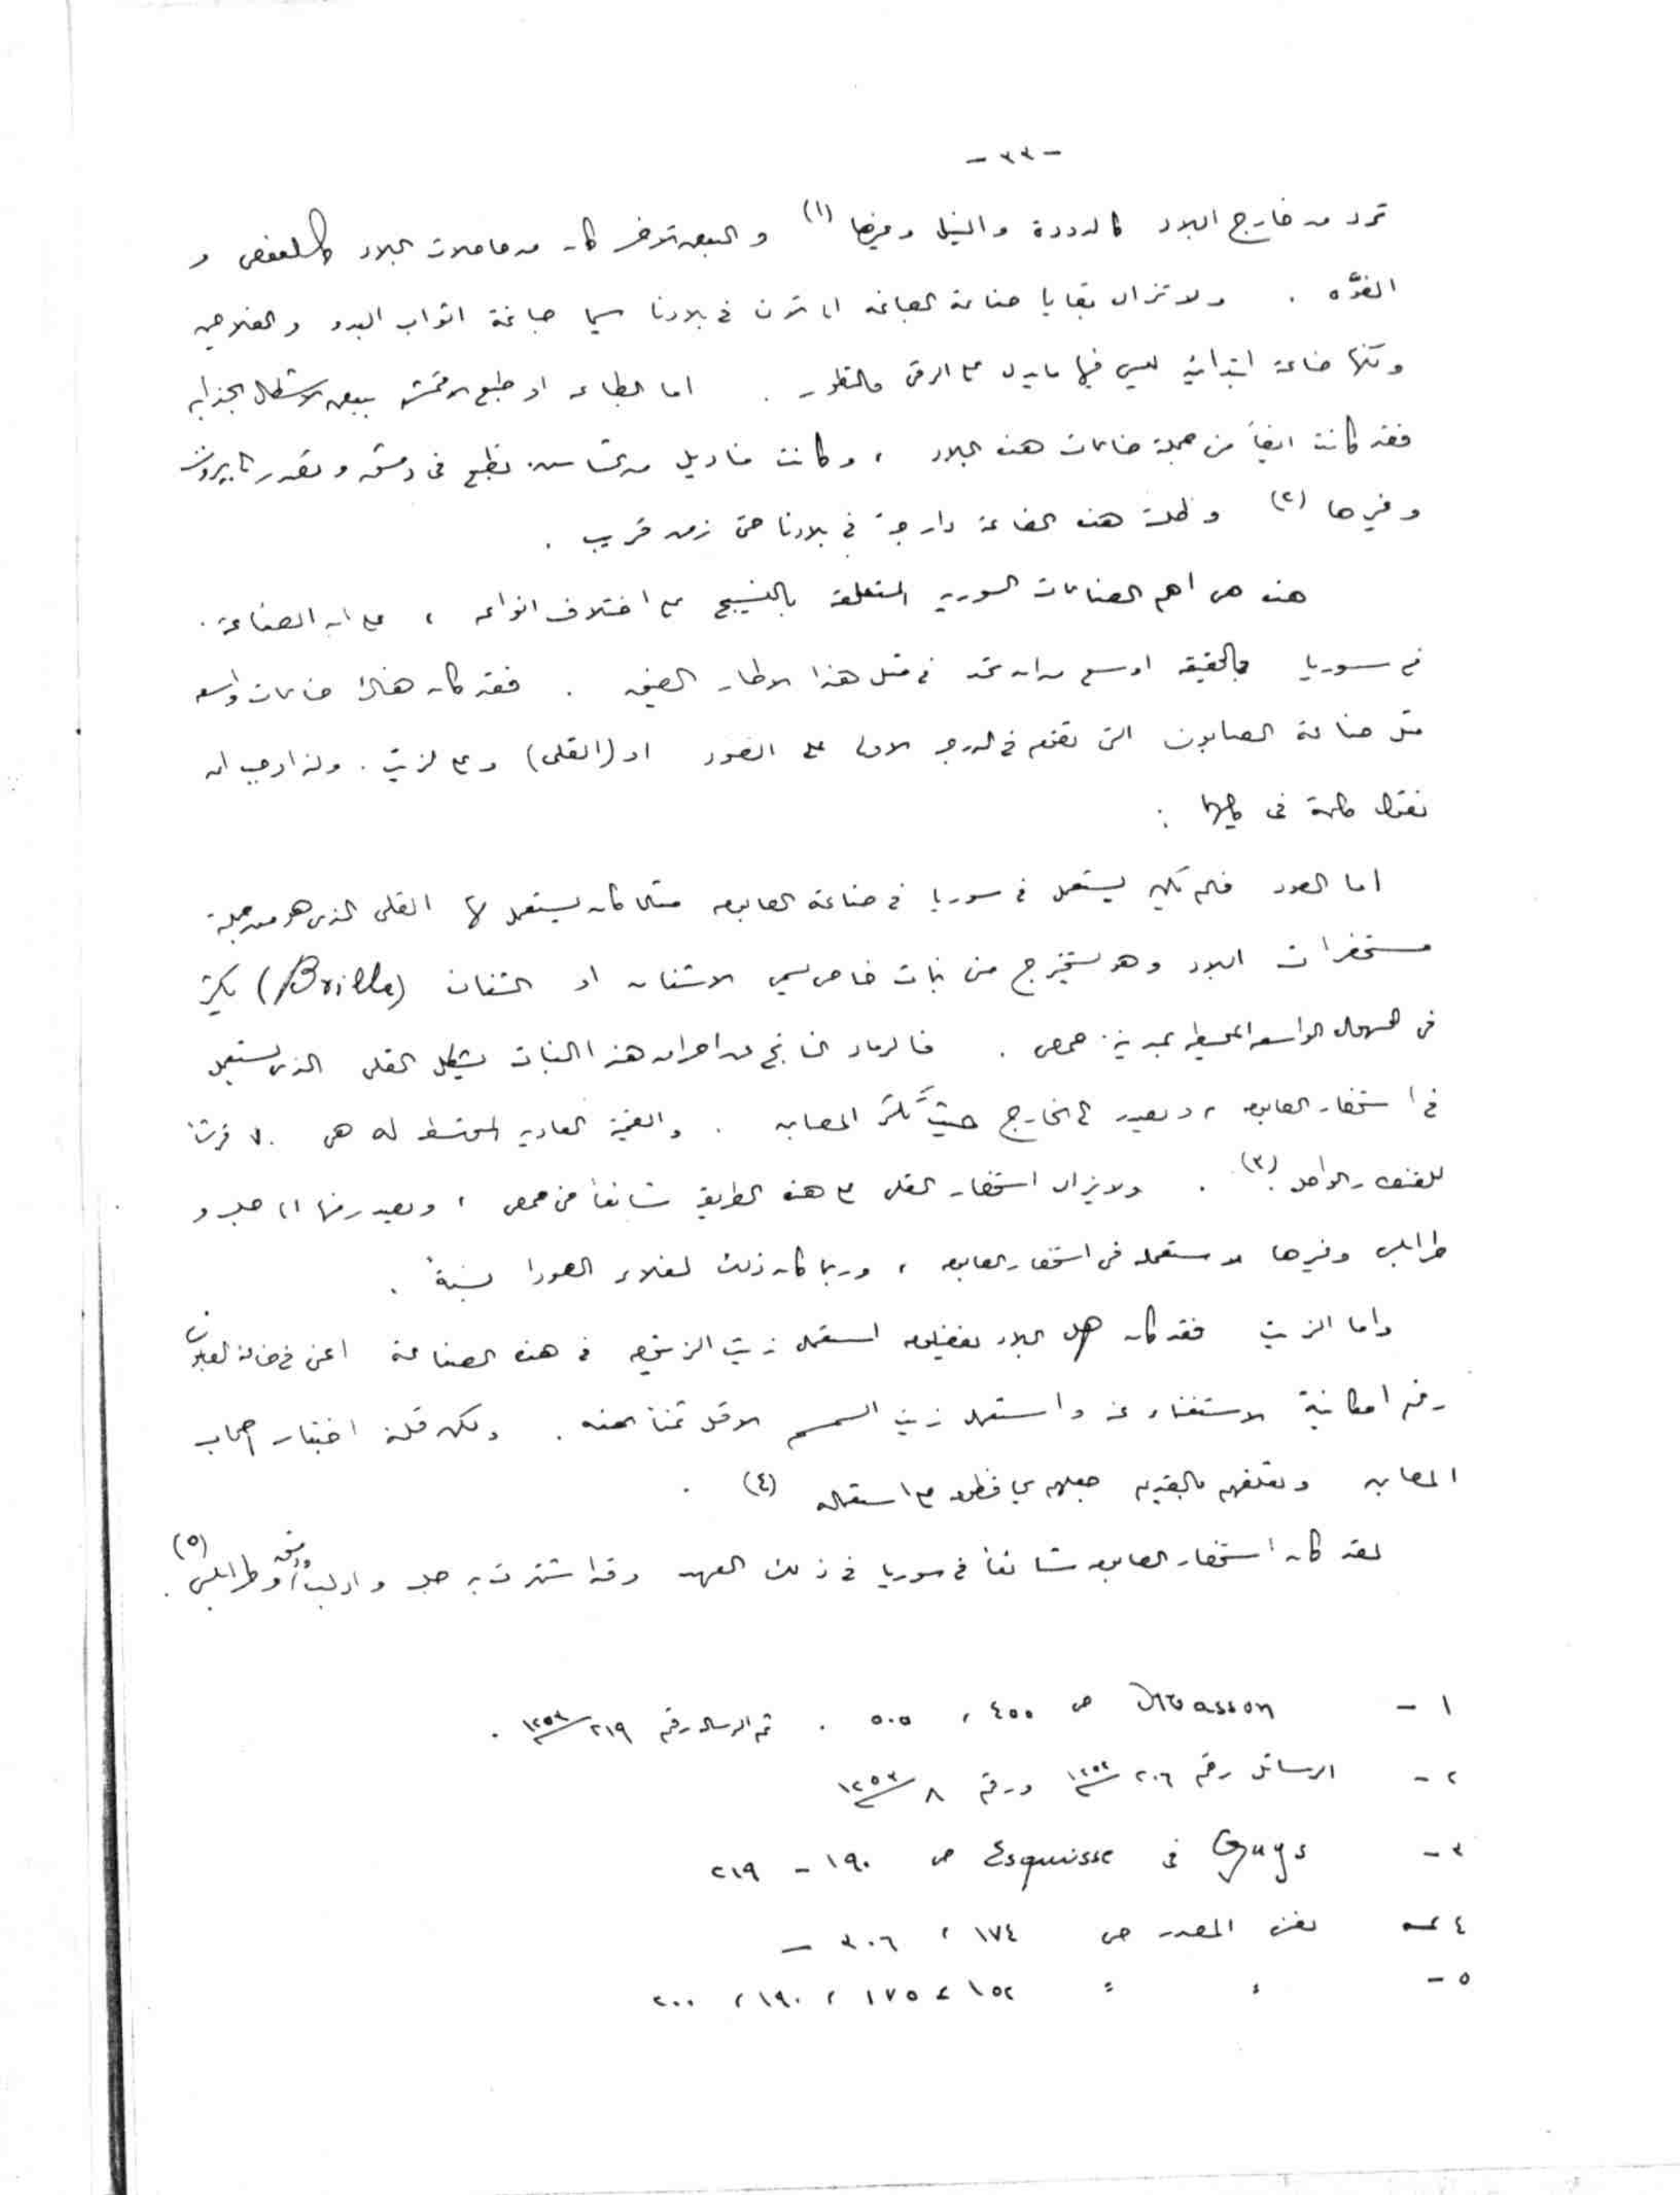 - ٣٣ -
ترد من خارج البلاد كالدودة والنيل وغيرها (١) والبعض الآخر كان من حاصلات البلاد كالعفص و
الفوّه . ولا تزال بقايا صناعة الصباغة الى الآن في بلادنا سيما صباغة اثواب البدو والفلاحين
ولكنها صناعة ابتدائية ليس فيها ما يدل على الرقي والتطور . اما الطباعة او طبع الاقمشة ببعض الاشكال الجذابة
فقد كانت ايضاً من جملة صناعات هذه البلاد ، وكانت مناديل من الشاس تطبع في دمشق وتصدر لبيروت
وغيرها (٢) وظلت هذه الصناعة دارجة في بلادنا حتى زمن قريب .
هذه هي اهم الصناعات السورية المتعلقة بالنسيج على اختلاف انواعه ، على ان الصناعة
في سوريا بالحقيقة اوسع من ان تحد في مثل هذا الاطار الضيق . فقد كان هناك صناعات واسعة
مثل صناعة الصابون التي تقوم في الدرجة الاولى على الصود او (القلي) وعلى الزيت . ولذا وجب ان
نقول كلمة في كليهما :
اما الصود فلم يكن يستعمل في سوريا في صناعة الصابون مثلما كان يستعمل لها القلي الذي هو من جملة
مستحضرات البلاد وهو يستخرج من نبات خاص يسمى الاشنان او الشنان (Brille) يكثر
في السهول الواسعة المحيطة بمدينة حمص . فالرماد الناتج عن احراق هذا النبات يشكل القلي الذي يستعمل
في استحضار الصابون ، ويصدر الى الخارج حيث تكثر المصابن . والقيمة العادية المتوسطة له هي ٧٠ قرشاً
للقنطار الواحد (٣) . ولا يزال استحضار القلي على هذه الطريقة شائعاً في حمص ، ويصدر منها الى حلب و
طرابلس وغيرها لاستعماله في استحضار الصابون ، وربما كان ذلك لغلاء الصودا نسبةً .
واما الزيت فقد كان اهل البلاد يفضلون استعمال زيت الزيتون في هذه الصناعة اعني في صناعة الصابون
رغم امكانية الاستغناء عنه واستعمال زيت السمسم الاقل ثمناً منه . ولكن قلة اختبار اصحاب
المصابن وتعلقهم بالقديم جعلهم يحافظون على استعماله (٤) .
لقد كان استحضار الصابون شائعاً في سوريا في ذلك العهد وقد اشتهرت به حلب وادلب ودمشق وطرابلس (٥) .
١ - Masson ص ٤٠٠ ، ٥٠٥ . ثم الرسالة رقم ٢١٩ / ١٢٥٣ .
٢ - الرسائل رقم ٢٠٦ / ١٢٥٢ ورقم ٨ / ١٢٥٣
٣ - Guys في Esquisse ص ١٩٠ - ٢١٩
٤ - نفس المصدر ص ١٧٤ ، ٣٠٦ -
٥ - " " ١٥٢ ، ١٧٥ ، ١٩٠ ، ٢٠٠